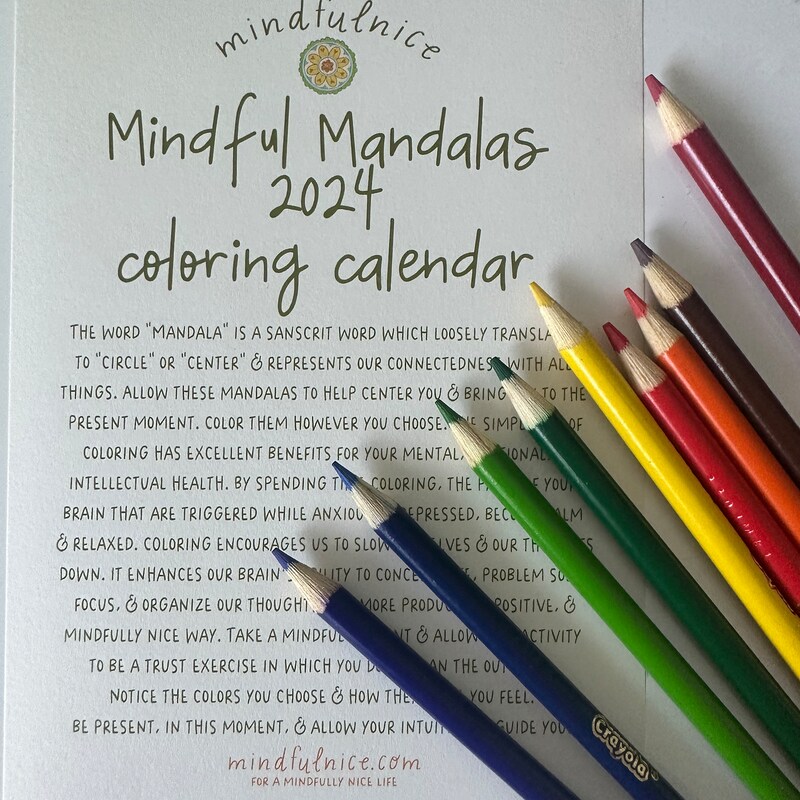 mindfulnice
Mindful Mandalas
2024
coloring calendar
THE WORD "MANDALA" IS A SANSCRIT WORD WHICH LOOSELY
TO "CIRCLE" OR "CENTER" & REPRESENTS OUR CONNECTEDNESS WITH ALL
THINGS. ALLOW THESE MANDALAS TO HELP CENTER YOU & BRING TO THE
PRESENT MOMENT. COLOR THEM HOWEVER YOU CHOOSE. OF
COLORING HAS EXCELLENT BENEFITS FOR YOUR MENTAL,
INTELLECTUAL HEALTH. BY SPENDING COLORING, THE OF YOUR
BRAIN THAT ARE TRIGGERED WHILE
& RELAXED. COLORING ENCOURAGES US TO & OUR
DOWN. IT ENHANCES OUR BRAIN'S PROBLEM
FOCUS, & ORGANIZE OUR MORE POSITIVE, &
MINDFULLY NICE WAY. TAKE A & ALLOW ACTIVITY
TO BE A TRUST EXERCISE IN WHICH YOU THE
NOTICE THE COLORS YOU CHOOSE & HOW YOU FEEL.
BE PRESENT, IN THIS MOMENT, & ALLOW YOUR GUIDE
mindfulnice.com
FOR A MINDFULLY NICE LIFE
Crayola